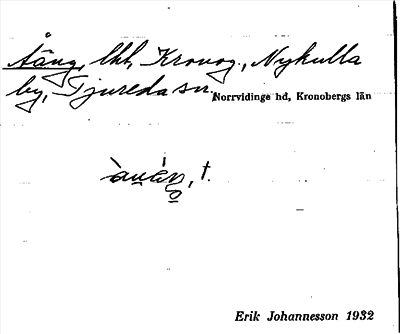 Åäng, lht, Kronog., Nykulla
by, Tjureda sn.
Norrvidinge hd, Kronobergs län
t.
Erik Johannesson 1932